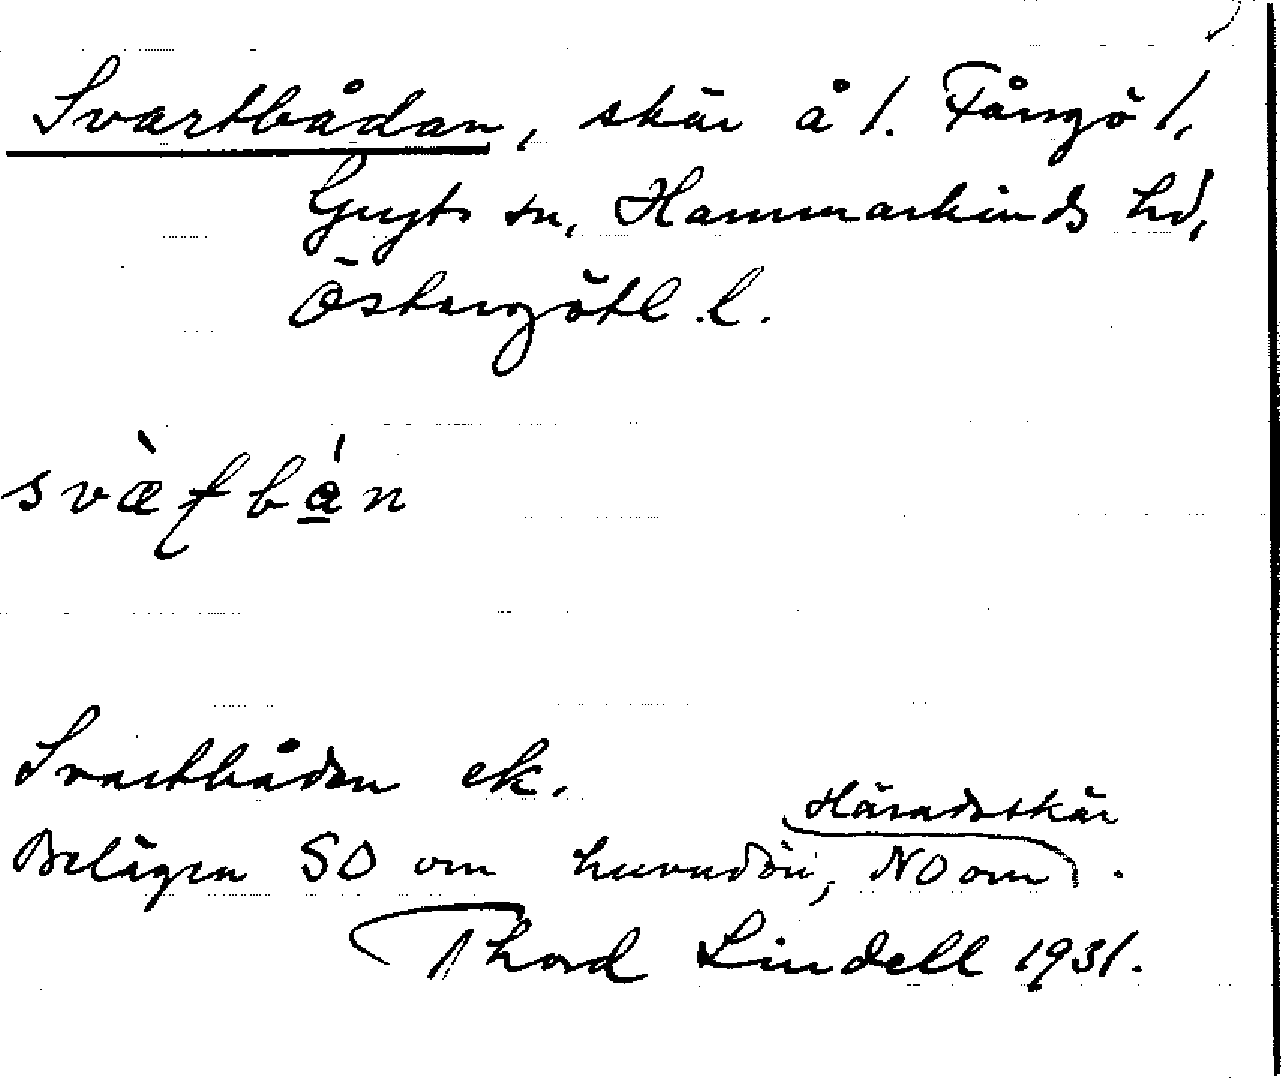 Svartbådan, skär å 1. Fångö 1,
Gryts sn, Hammarkinds hd,
Östergötl. l.
Svartbåden ek.
Häradsskär
Belägen SO om huvudön, NO om .
Thord Lindell 1931.